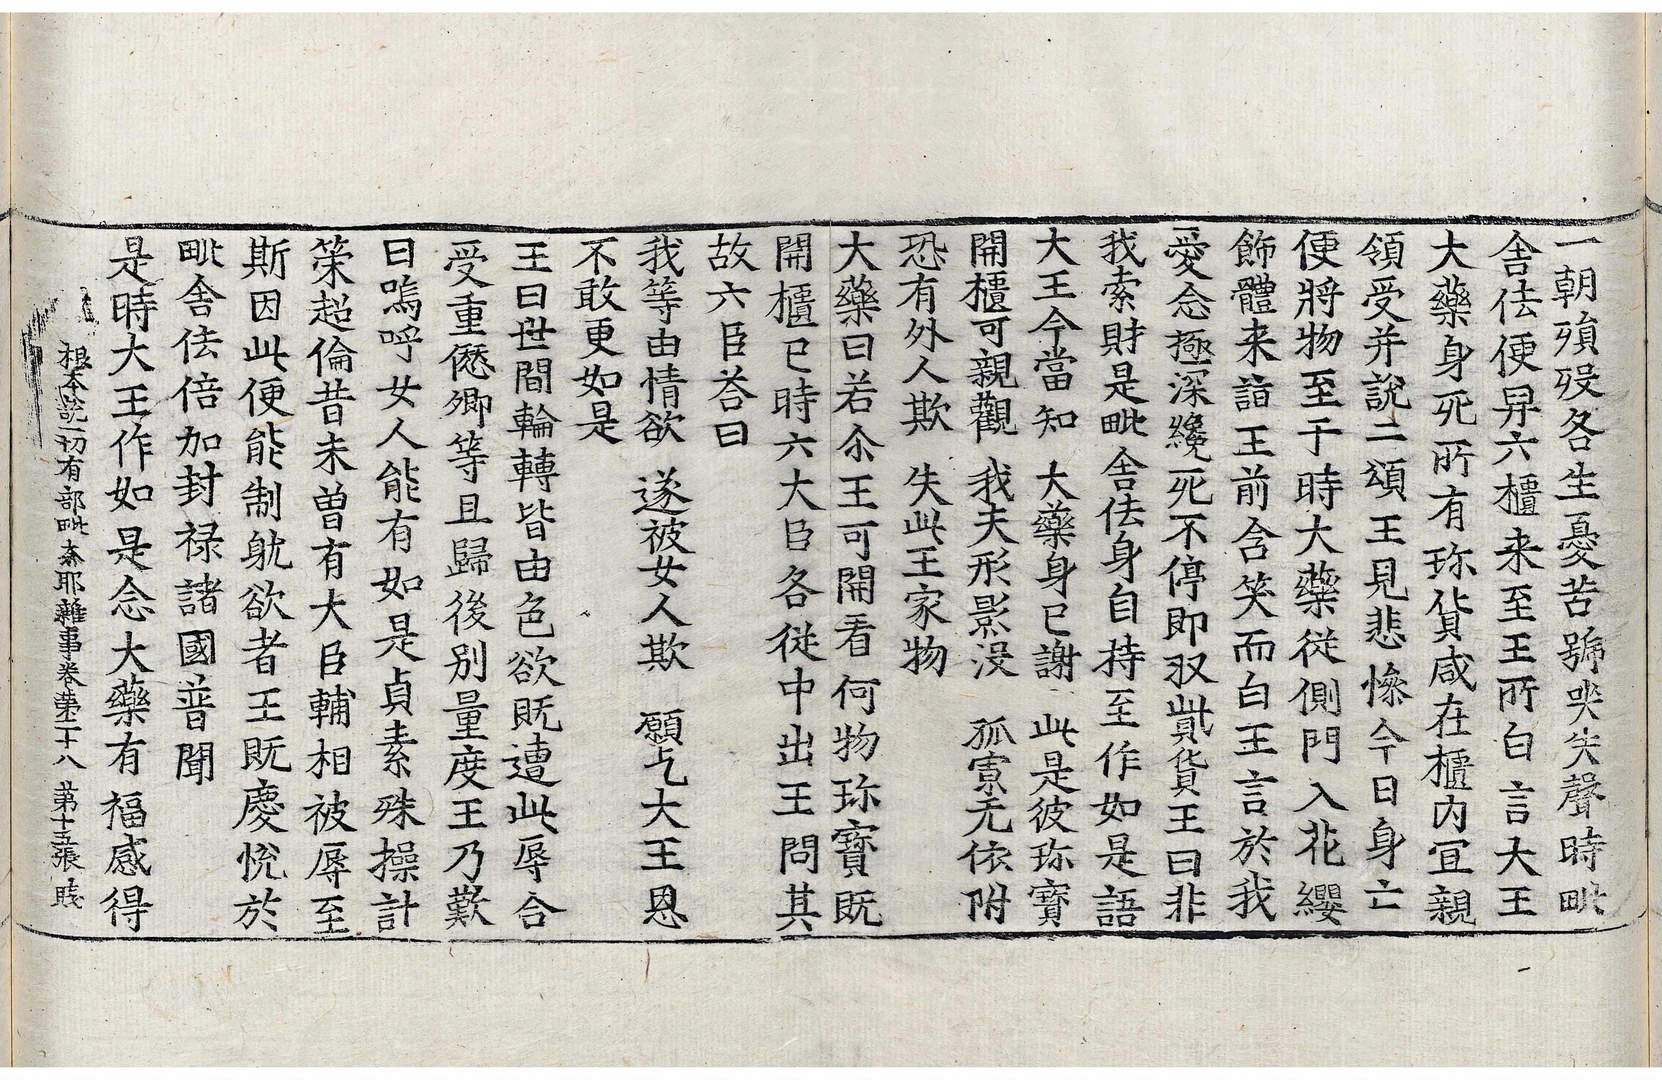 一朝殞歿各生憂苦號哭失聲時毗
舍佉便舁六櫃来至王所白言大王
大藥身死所有珎貨咸在櫃内冝親
領受并說二頌王見悲慘今日身亡
便將物至于時大藥從側門入花纓
飾體来詣王前含笑而白王言於我
愛念極深纔死不停即収貲貨王曰非
我索財是毗舍佉身自持至作如是語
大王今當知　大藥身已謝　此是彼珎寶
開櫃可親觀　我夫形影没　孤㝨无依附
恐有外人欺　失此王家物
大藥曰若尒王可開看何物珎寶既
開櫃已時六大臣各從中出王問其
故六臣荅曰
我等由情欲　遂被女人欺　願乞大王恩
不敢更如是
王曰世間輪轉皆由色欲既遭此辱合
受重僁卿等且歸後別量度王乃歎
曰嗚呼女人能有如是貞素殊操計
筞超倫昔未曽有大臣輔相被辱至
斯因此便能制躭欲者王既慶悅於
毗舍佉倍加封禄諸國普聞
是時大王作如是念大藥有福感得
根本說一切有部毗奈耶雜事卷苐二十八　苐十五張　賤